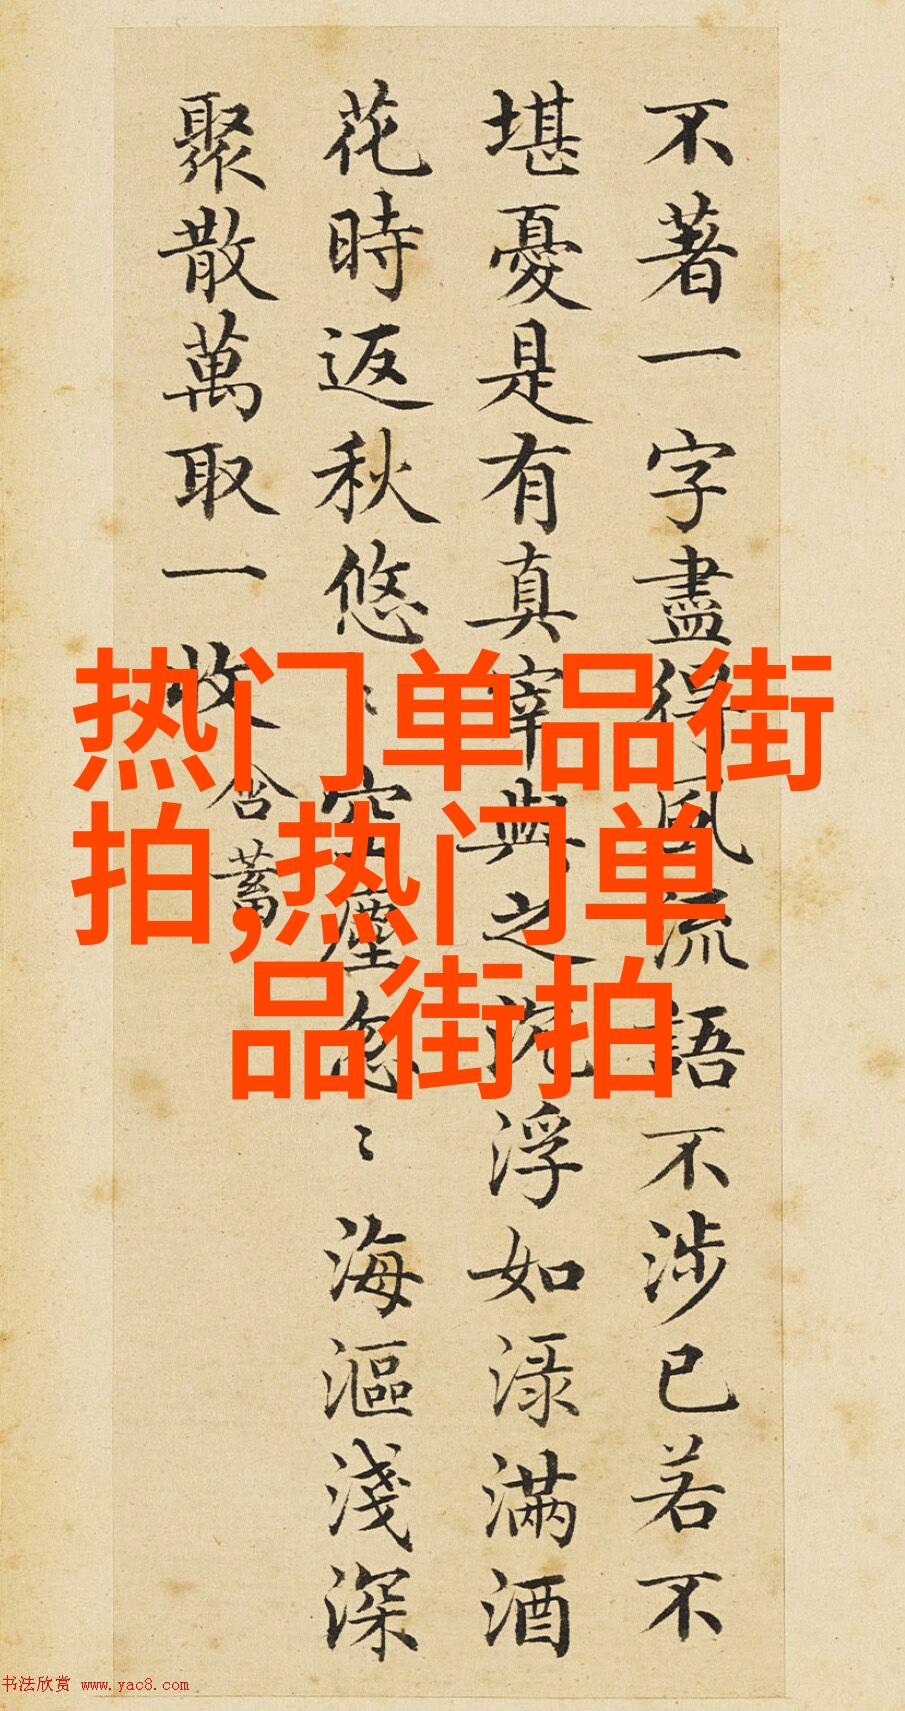 不著一字盡得風流語不涉已若不
堪憂是有真宰與之沉浮如淥滿酒
花時返秋悠〻空塵忽〻海漚淺深
聚散萬取一收含蓄
热门单品街
拍,热门单
品街拍
书法欣赏 www.yac8.com